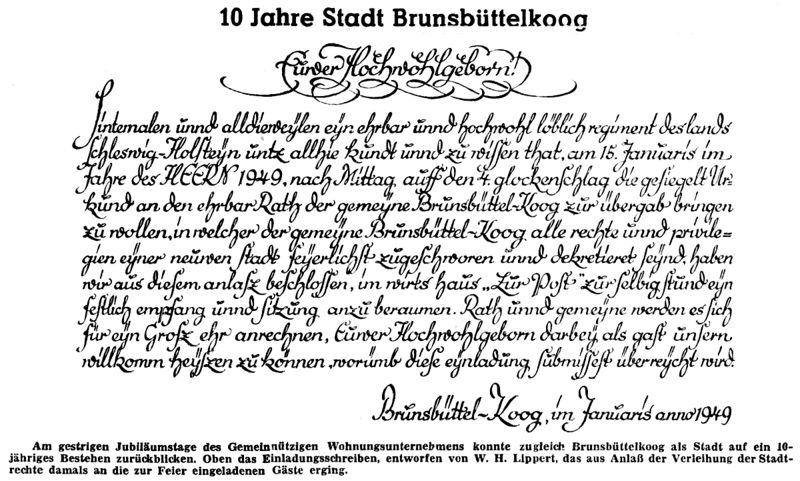 10 Jahre Stadt Brunsbüttelkoog
Eurer Hochwohlgeborn!
Sintemalen unnd alldierweylen eyn ehrbar unnd hochwohl löblich regiment des lands
Schleswig-Holsteyn untz allhie kundt unnd zu wissen that, am 15. Januaris im
Jahre des HEERN 1949, nach Mittag, auff den 4. glockenschlag die gesiegelt Ur=
kund an den ehrbar Rath der gemeyne Brunsbüttel-Koog zur übergab bringen
zu wollen, in welcher der gemeyne Brunsbüttel-Koog, alle rechte unnd privile=
gien eyner neuwen stadt feyerlichst zugeschworen unnd dekretieret seynd, haben
wir aus diesem anlasz beschlossen, im wirts haus „Zur Post" zur selbig stund eyn
festlich empfang unnd sitzung anzu beraumen. Rath unnd gemeyne werden es sich
für eyn Grosz ehr anrechnen, Eurver Hochwohlgeborn darbey als gast unsern
willkomm heyszen zu können, worümb diese eynladung submissest überreycht wird.
Brunsbüttel-Koog, im Januaris anno 1949
Am gestrigen Jubiläumstage des Gemeinnützigen Wohnungsunternehmens konnte zugleich Brunsbüttelkoog als Stadt auf ein 10-
jähriges Bestehen zurückblicken. Oben das Einladungsschreiben, entworfen von W. H. Lippert, das aus Anlaß der Verleihung der Stadt-
rechte damals an die zur Feier eingeladenen Gäste erging.